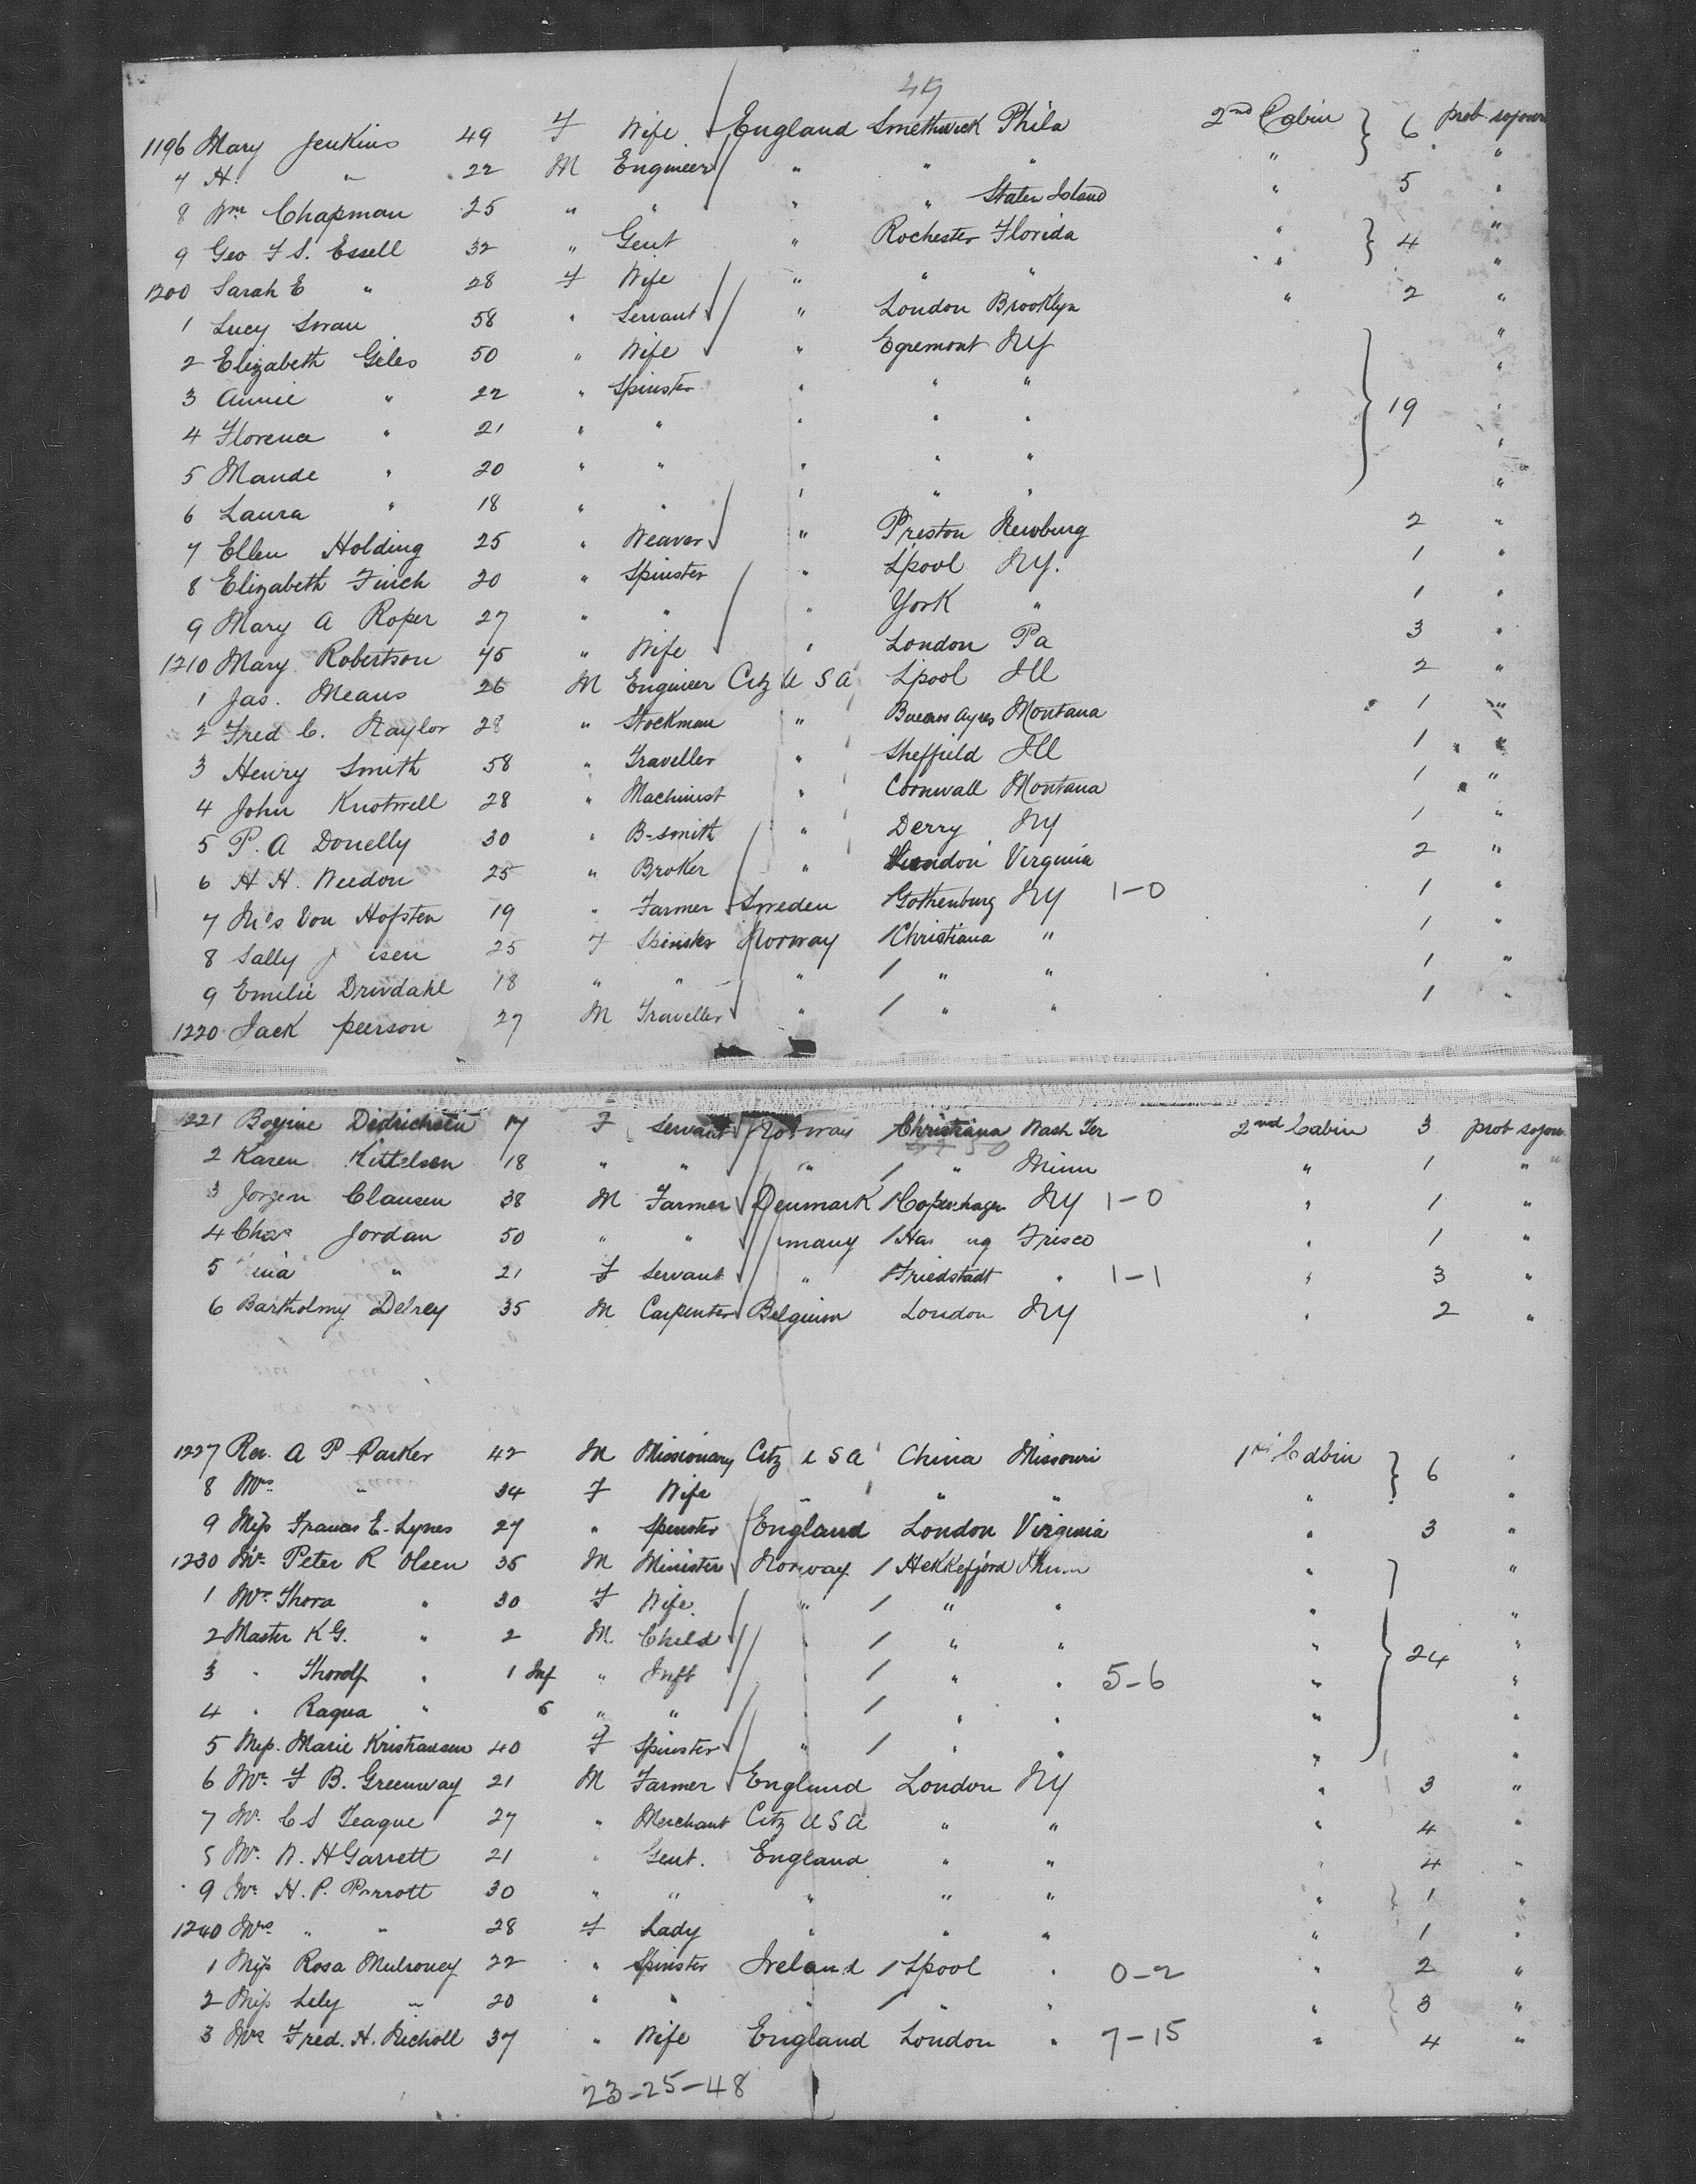 49
1196 Mary Jenkins 49 F Wife England Smethwick Phila 2nd Cabin } 6 prob sojourn
7 H. " 22 M Engineer " " " " "
8 Wm Chapman 25 " " " " Staten Island " 5 "
9 Geo F S. Essell 32 " Gent " Rochester Florida " } 4 "
1200 Sarah E " 28 F Wife " " " " "
1 Lucy Swan 58 " Servant " London Brooklyn " 2 "
2 Elizabeth Giles 50 " Wife " Egremont NY } 19 "
3 Annie " 22 " Spinster " " " "
4 Florence " 21 " " " " " "
5 Maude " 20 " " " " " "
6 Laura " 18 " " " " " "
7 Ellen Holding 25 " Weaver " Preston Newburg 2 "
8 Elizabeth Finch 20 " Spinster " Lpool NY. 1 "
9 Mary A Roper 27 " " " York " 1 "
1210 Mary Robertson 45 " Wife " London Pa 3 "
1 Jas. Means 26 M Engineer Citz U S A Lpool Ill 2 "
2 Fred C. Naylor 28 " Stockman " Buenos Ayres Montana 1 "
3 Henry Smith 58 " Traveller " Sheffield Ill 1 "
4 John Knotwell 28 " Machinist " Cornwall Montana 1 "
5 P. A Donelly 30 " B-smith " Derry NY 1 "
6 H H. Weedon 25 " Broker " London Virginia 2 "
7 Nils Von Hofsten 19 " Farmer Sweden 1 Gothenburg NY 1-0 1 "
8 Sally J isen 25 F Spinster Norway 1 Christiana " 1 "
9 Emilie Drivdahl 18 " " " 1 " " 1 "
1220 Jack peerson 27 M Traveller " 1 " " 1 "
1221 Didrichsen 17 F Servant Norway 1 Christiana Wash Ter 2nd Cabin 3 prob sojou
2 Karen Kittelsen 18 " " " 1 " Minn " 1 "
3 Jorgen Clausen 38 M Farmer Denmark 1 Copenhagen NY 1-0 " 1 "
4 Chas Jordan 50 " " many 1 Ha ng Frisco " 1 "
5 ina " 21 F Servant " 1 Friedstadt " 1-1 " 3 "
6 Bartholmy Delrey 35 M Carpenter Belgium London NY " 2 "
1227 Rev. A P Parker 42 M Missionary Citz U S A China Missouri 1st Cabin } 6 "
8 Mrs " 34 F Wife " " " " "
9 Miss Frances E. Lynes 27 " Spinster England London Virginia " 3 "
1230 Mr Peter R Olsen 35 M Minister Norway 1 Hekkefjord Minn " } "
1 Mrs Thora " 30 F Wife " 1 " " " "
2 Master K G. " 2 M Child " 1 " " " } 24 "
3 " Thorolf " 1 Inf " Inft " 1 " " 5-6 " "
4 " Ragna " 6 " " " 1 " " " "
5 Miss. Marie Kristiansen 40 F Spinster " 1 " " " "
6 Mr. F B. Greenway 21 M Farmer England London NY " 3 "
7 Mr. C S Teague 27 " Merchant Citz U S A " " " 4 "
8 Mr. W. H Garrett 21 " Gent. England " " " 4 "
9 Mr H. P. Parrott 30 " " " " " " } 1 "
1240 Mrs " " 28 F Lady " " " " 1 "
1 Miss Rosa Mulroney 22 " Spinster Ireland 1 Lpool " 0-2 " 2 "
2 Miss Lily " 20 " " " 1 " " " } 3 "
3 Mrs Fred. H. Nicholl 37 " Wife England London " 7-15 " 4 "
23-25-48